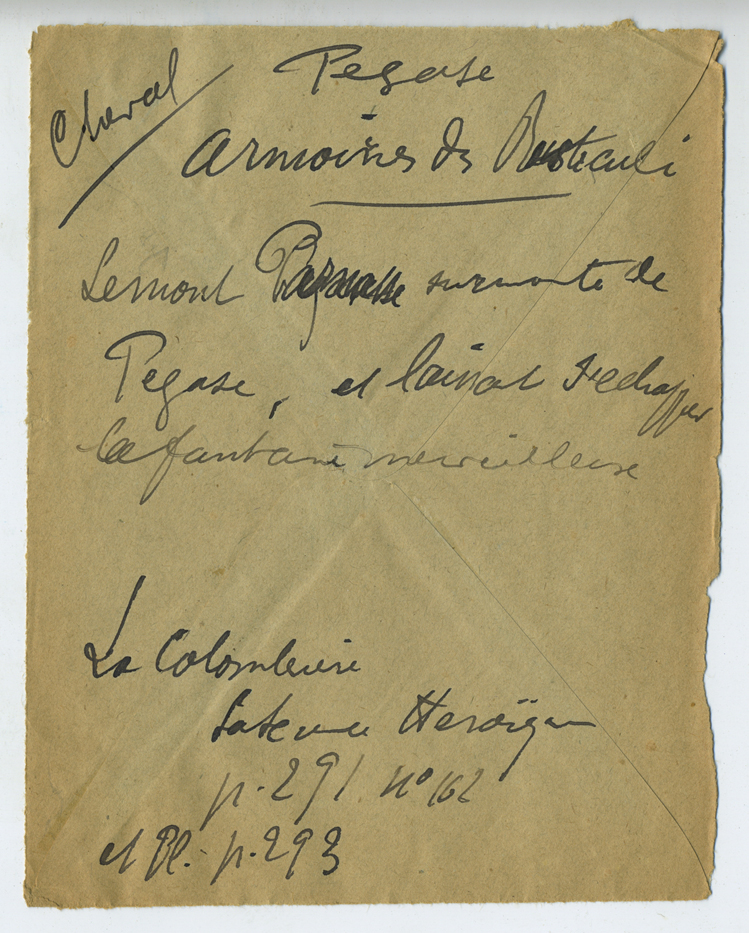 Cheval
Pegase
Armoiries des
Le mont Parnasse surmonté de
Pégase, et laissant s'echapper
la fontaine merveilleuse
La Colombiere
La Science Heroïque
p. 291 n° 162
et Pl. p. 293